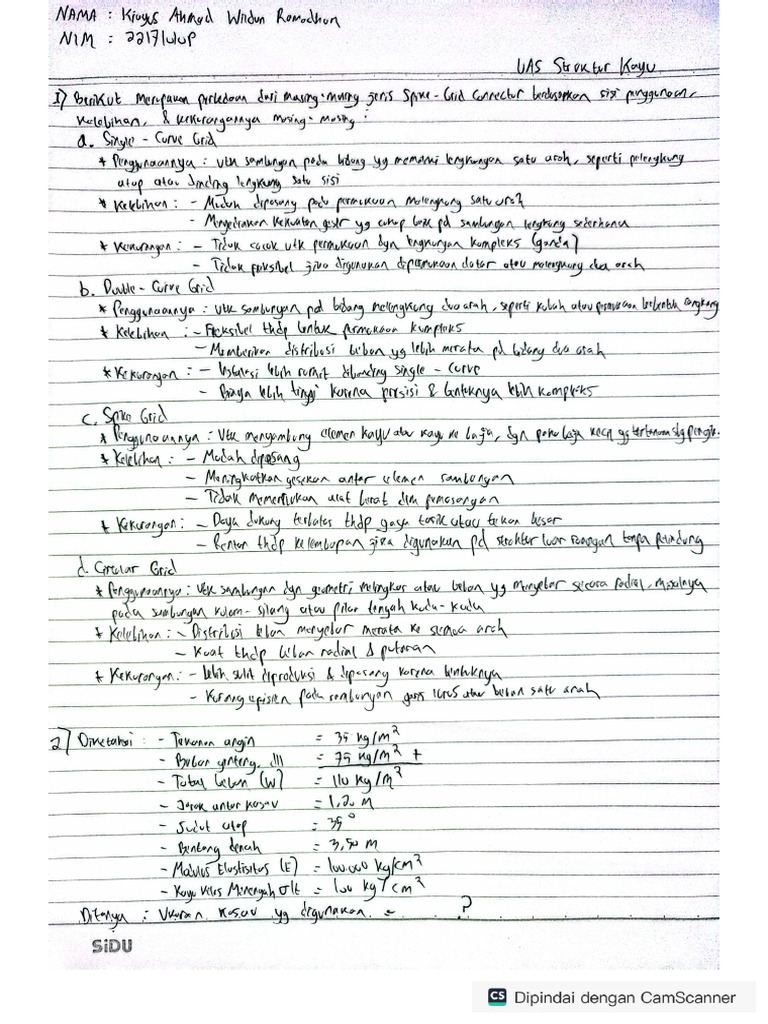 NAMA : Kiagus Ahmad Wildan Ramadhan
NIM :
UAS Struktur Kayu
1) Berikut Merupakan perbedaan dari masing-masing jenis Spike-Grid Connector berdasarkan sisi penggunaan,
kelebihan, & kekurangannya masing-masing :
a. Single-Curve Grid
* Penggunaannya : utk sambungan pada bidang yg memiliki lengkungan satu arah, seperti pelengkung
atap atau dinding lengkung satu sisi
* Kelebihan : - Mudah dipasang pada permukaan melengkung satu arah
- Menyediakan kekuatan geser yg cukup baik pd sambungan lengkung sederhana
* Kekurangan : - Tidak cocok utk permukaan dgn lengkungan kompleks (ganda)
- Tidak fleksibel jika digunakan dipermukaan datar atau melengkung dua arah
b. Double-Curve Grid
* Penggunaannya : utk sambungan pd bidang melengkung dua arah, seperti kubah atau permukaan berbentuk cangkang
* Kelebihan : - Fleksibel thdp bentuk permukaan kompleks
- Memberikan distribusi beban yg lebih merata pd bidang dua arah
* Kekurangan : - Instalasi lebih rumit dibanding single-curve
- Biaya lebih tinggi karena presisi & bentuknya lebih kompleks
c. Spike Grid
* Penggunaannya : utk menyambung elemen kayu atau kayu ke baja, dgn paku baja kecil yg tertanam sbg
* Kelebihan : - Mudah dipasang
- Meningkatkan gesekan antar elemen sambungan
- Tidak memerlukan alat berat dlm pemasangan
* Kekurangan : - Daya dukung terbatas thdp gaya tarik atau tekan besar
- Rentan thdp kelembapan jika digunakan pd struktur luar ruangan tanpa pelindung
d. Circular Grid
* Penggunaannya : utk sambungan dgn geometri melingkar atau beban yg menyebar secara radial, misalnya
pada sambungan kolom-silang atau pilar tengah kuda-kuda
* Kelebihan : - Distribusi beban menyebar merata ke semua arah
- Kuat thdp beban radial & putaran
* Kekurangan : - Lebih sulit diproduksi & dipasang karena bentuknya
- Kurang efisien pada sambungan garis lurus atau beban satu arah
2) Diketahui : - Tekanan angin = 35 kg/m²
- Beban genteng, dll = 75 kg/m² +
- Total beban (W) = 110 kg/m²
- Jarak antar kasau = 1,20 m
- Sudut atap = 35°
- Bentang denah = 3,50 m
- Modulus Elastisitas (E) = 100.000 kg/cm²
- Kayu Kelas Menengah σlt = 100 kg/cm²
Ditanya : Ukuran kasau yg digunakan = ?
SiDU
CS Dipindai dengan CamScanner